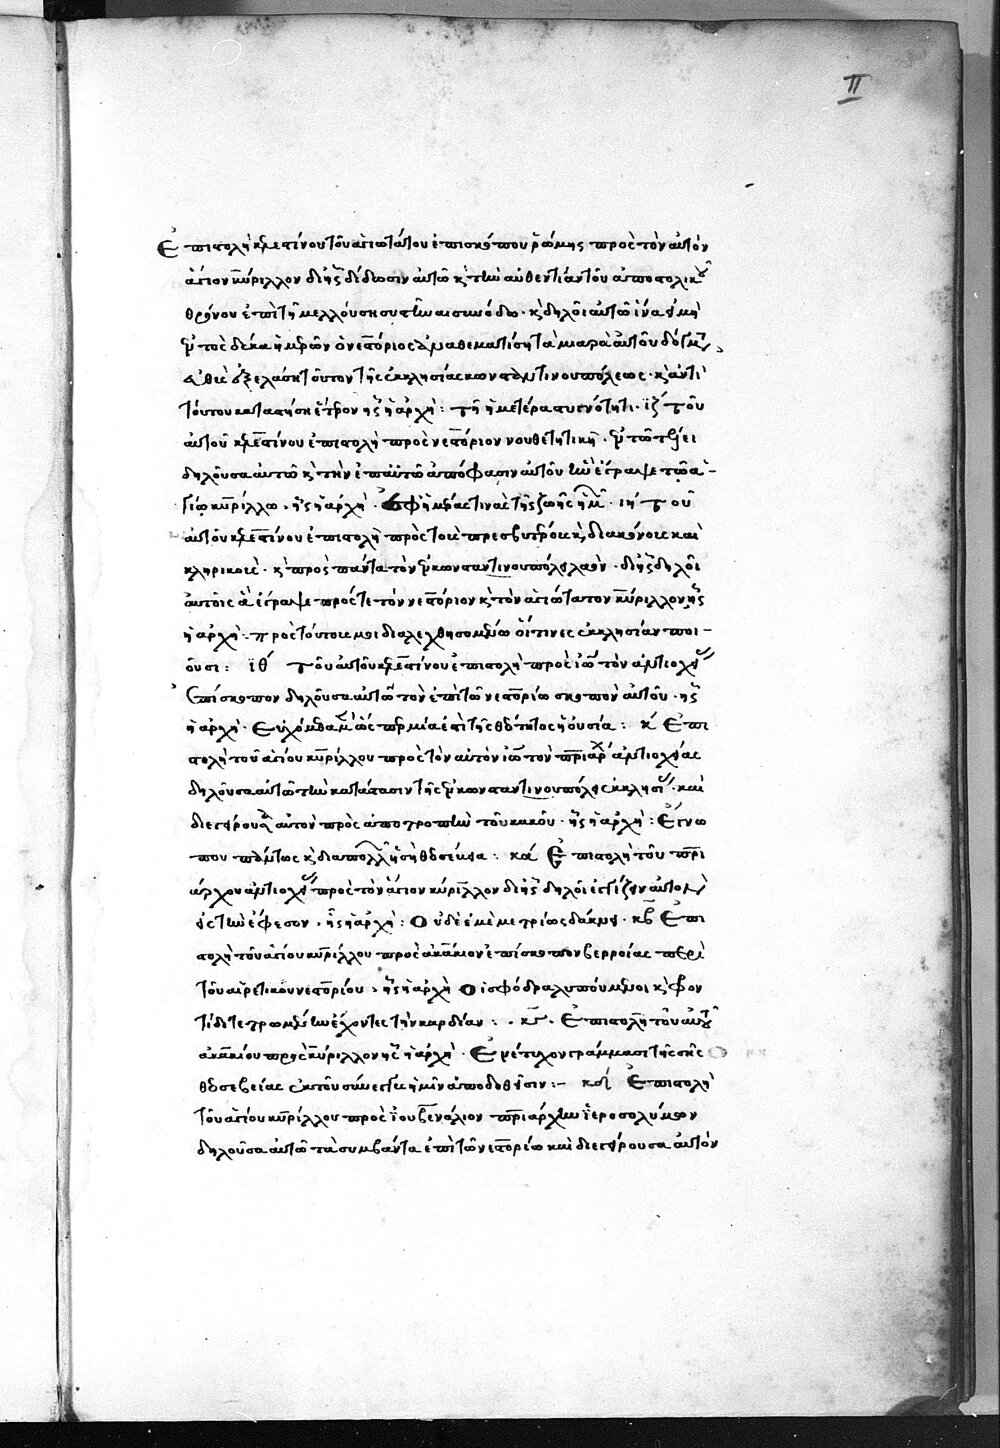 II
Ἐπιστολὴ κελεστίνου τοῦ ἁγιωτάτου ἐπισκόπου ῥώμης πρὸς τὸν αὐτὸν
ἅγιον κύριλλον δι ἧς δίδωσιν αὐτῶ κ τὴν αὐθεντίαν τοῦ ἀποστολικοῦ
θρόνου ἐπὶ τῆ μελλούση συστῆναι συνόδω · κ δηλοῖ αὐτῶ ἵνα εἰ μὴ
ἐντὸς δέκα ἡμερῶν ὁ νεστόριος ἀναθεματίση τὰ μιαρὰ αὐτοῦ δόγματα,
εὐθὺς ἐξελάση τοῦτον τῆς ἐκκλησίας κωνσταντινουπόλεως · κ ἀντὶ
τούτου καταστήση ἕτερον ἧς ἡ ἀρχὴ : τῆ ἡμετέρα συενότητι · ιζ τοῦ
αὐτοῦ κελεστίνου ἐπιστολὴ πρὸς νεστόριον νουθετητικὴ · ἐν τῶ τέλει
δηλοῦσα αὐτῶ κ τὴν ἐπ αὐτῶ ἀπόφασιν αὐτοῦ ἣν ἔγραψε τῶ ἁ-
γίω κυρίλλω · ἧς ἡ ἀρχὴ · Ἐφ ἡμέρας τινας τῆς ζωῆς ἡμῶν · ιη τοῦ
αὐτοῦ κελεστίνου ἐπιστολὴ πρὸς τοὺς πρεσβυτέρους κ διακόνους καὶ
κληρικοὺς · κ πρὸς πάντα τὸν ἐν κωνσταντινουπόλει λαόν · δι ἧς δηλοῖ
αὐτοῖς ἃ ἔγραψε πρός τε τὸν νεστόριον κ τὸν ἁγιώτατον κύριλλον ἧς
ἡ ἀρχὴ : πρὸς τούτους μοι διαλεχθησομένω οἵτινες ἐκκλησίαν ποι-
οῦσι : ιθ τοῦ αὐτοῦ κελεστίνου ἐπιστολὴ πρὸς ἰω τὸν ἀντιοχείας
ἐπίσκοπον δηλοῦσα αὐτῶ τὸν ἐπὶ τῶ νεστορίω σκοπὸν αὐτοῦ · ἧς
ἡ ἀρχὴ · Εὐχόμεθα μὲν ὥσπερ μία ἐστὶ τῆς θεότητος ἡ οὐσία : κ Ἐπι
στολὴ τοῦ ἁγίου κυρίλλου πρὸς τὸν αὐτὸν ἰω τὸν πριάρχ ἀντιοχείας
δηλοῦσα αὐτῶ τὴν κατάστασιν τῆς ἐν κωνσταντινουπόλει ἐκκλησίας · καὶ
διεγείρουσα αὐτὸν πρὸς ἀποτροπὴν τοῦ κακοῦ · ἧς ἡ ἀρχὴ : Ἔγνω
που πάντως κ διαπολλῶν ἡ σὴ θεοσέβεια : κα Ἐπιστολὴ τοῦ πρι
άρχου ἀντιοχείας πρὸς τὸν ἅγιον κύριλλον δι ἧς δηλοῖ ἐγγίζειν αὐτὸν
εἰς τὴν ἔφεσον · ἧς ἡ ἀρχὴ : Οὐδὲ ἐμὲ μετρίως δάκνει · κβ Ἐπι
στολὴ τοῦ ἁγίου κυρίλλου πρὸς ἀκάκιον ἐπίσκοπον βερροίας περὶ
τοῦ αἱρετικοῦ νεστορίου · ἧς ἡ ἀρχὴ Οἱ σφόδρα λυπούμενοι κ φρον
τίδι τετρωμένην ἔχοντες τὴν καρδίαν : · κγ · Ἐπιστολὴ τοῦ αὐτοῦ
ἀκακίου πρὸς κύριλλον ἧς ἡ ἀρχὴ · Ἐνέτυχον γράμμασι τῆς σῆς
θεοσεβείας ἐκ τοῦ σύνεγγυς ἡμῖν ἀποδοθεῖσιν :- κδ Ἐπιστολὴ
τοῦ ἁγίου κυρίλλου πρὸς ἰουβενάλιον πριάρχην ἱεροσολύμων
δηλοῦσα αὐτῶ τὰ συμβάντα ἐπὶ τῶ νεστορίω καὶ διεγείρουσα αὐτὸν